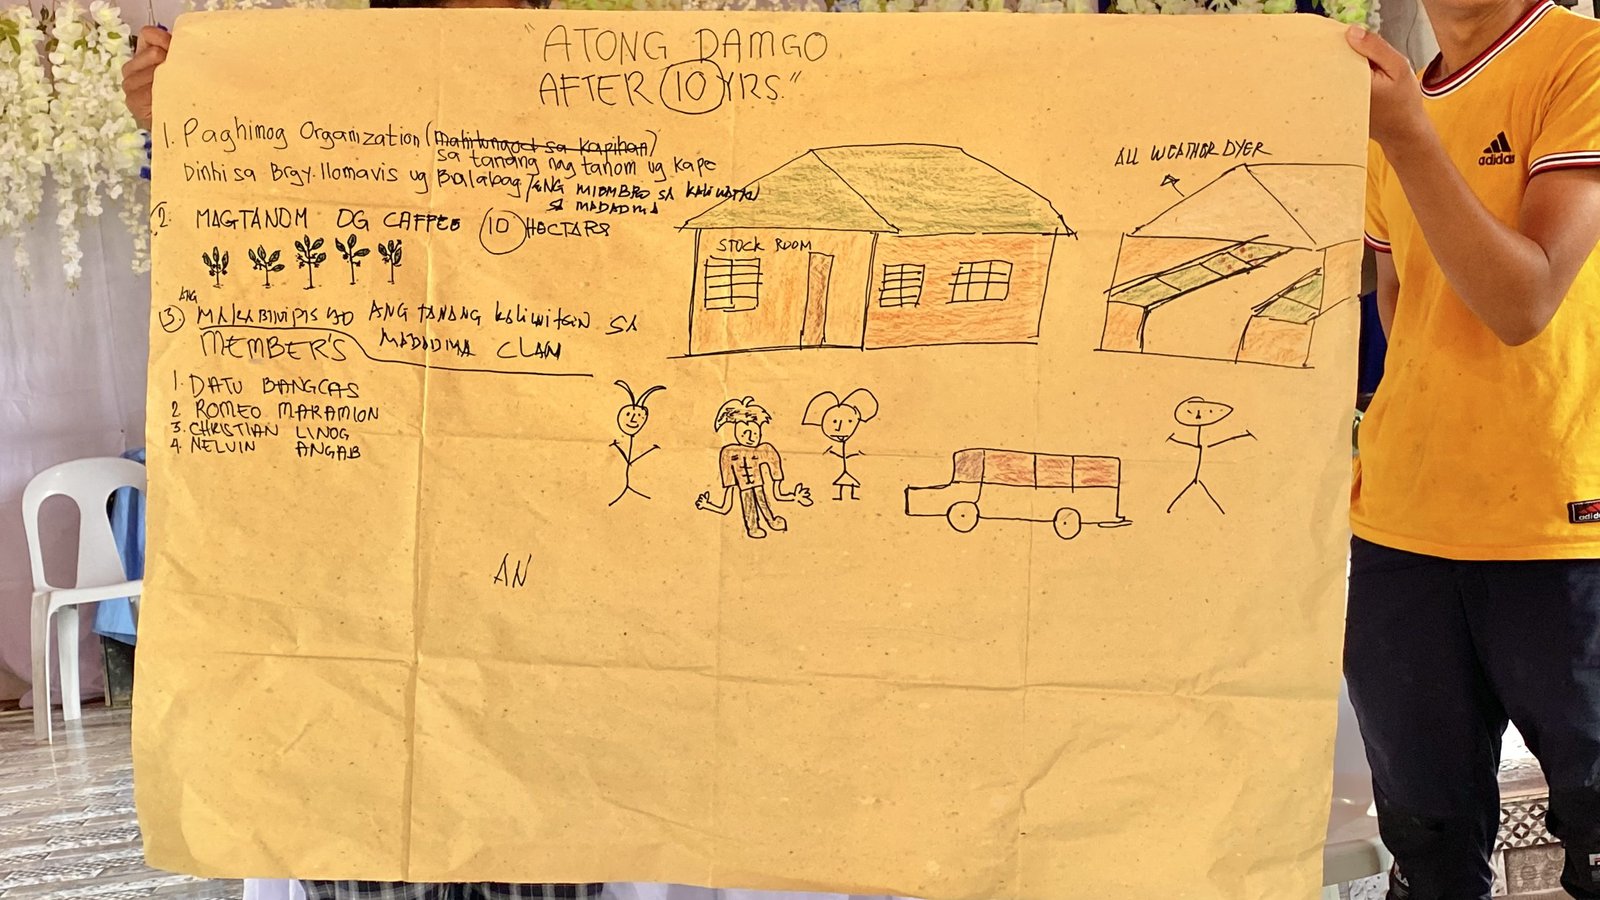 "ATONG DAMGO
AFTER 10 YRS."
1. Paghimog Organization (mahitungod sa kapihan)
sa tanang nag tanom ug kape
Dinhi sa Brgy. Ilomavis ug Balabag / ANG MIEMBRO SA KALIWATAN
SA MADADMA
2. MAGTANOM OG CAFFEE 10 HECTARS
ANG
3. MAKABINIPISYO ANG TANANG KALIWITSIN SA
MADADMA CLAN
MEMBER'S
1. DATU BANGCAS
2 ROMEO MARAMION
3. CHRISTIAN LINOG
4. NELVIN ANGAB
AN
STOCK ROOM
ALL WEATHER DYER
adidas
adidas